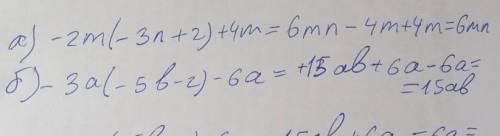 а) -2m(-3n+2)+4m=6mn-4m+4m=6mn
б)-3a(-5b-2)-6a=+15ab+6a-6a=
=15ab